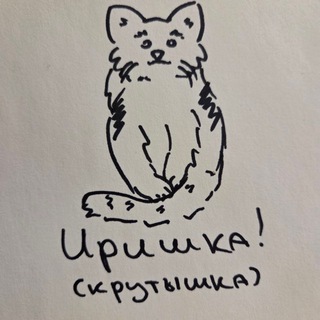 Иришка!
(крутышка)